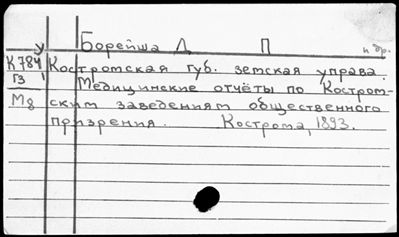 У Борейша Л. П и др.
К784 Костромская губ. земская управа.
Г3 Медицинские отчёты по Костром-
М8 ским заведениям общественного
призрения. Кострома, 1893.